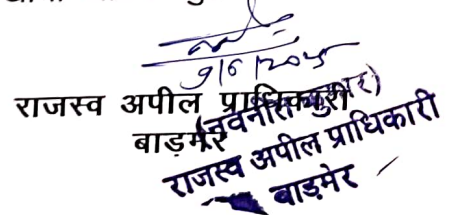 9/6/2025
राजस्व अपील प्राधिकारी
बाड़मेर
(नवनीत कुमार)
राजस्व अपील प्राधिकारी
बाड़मेर